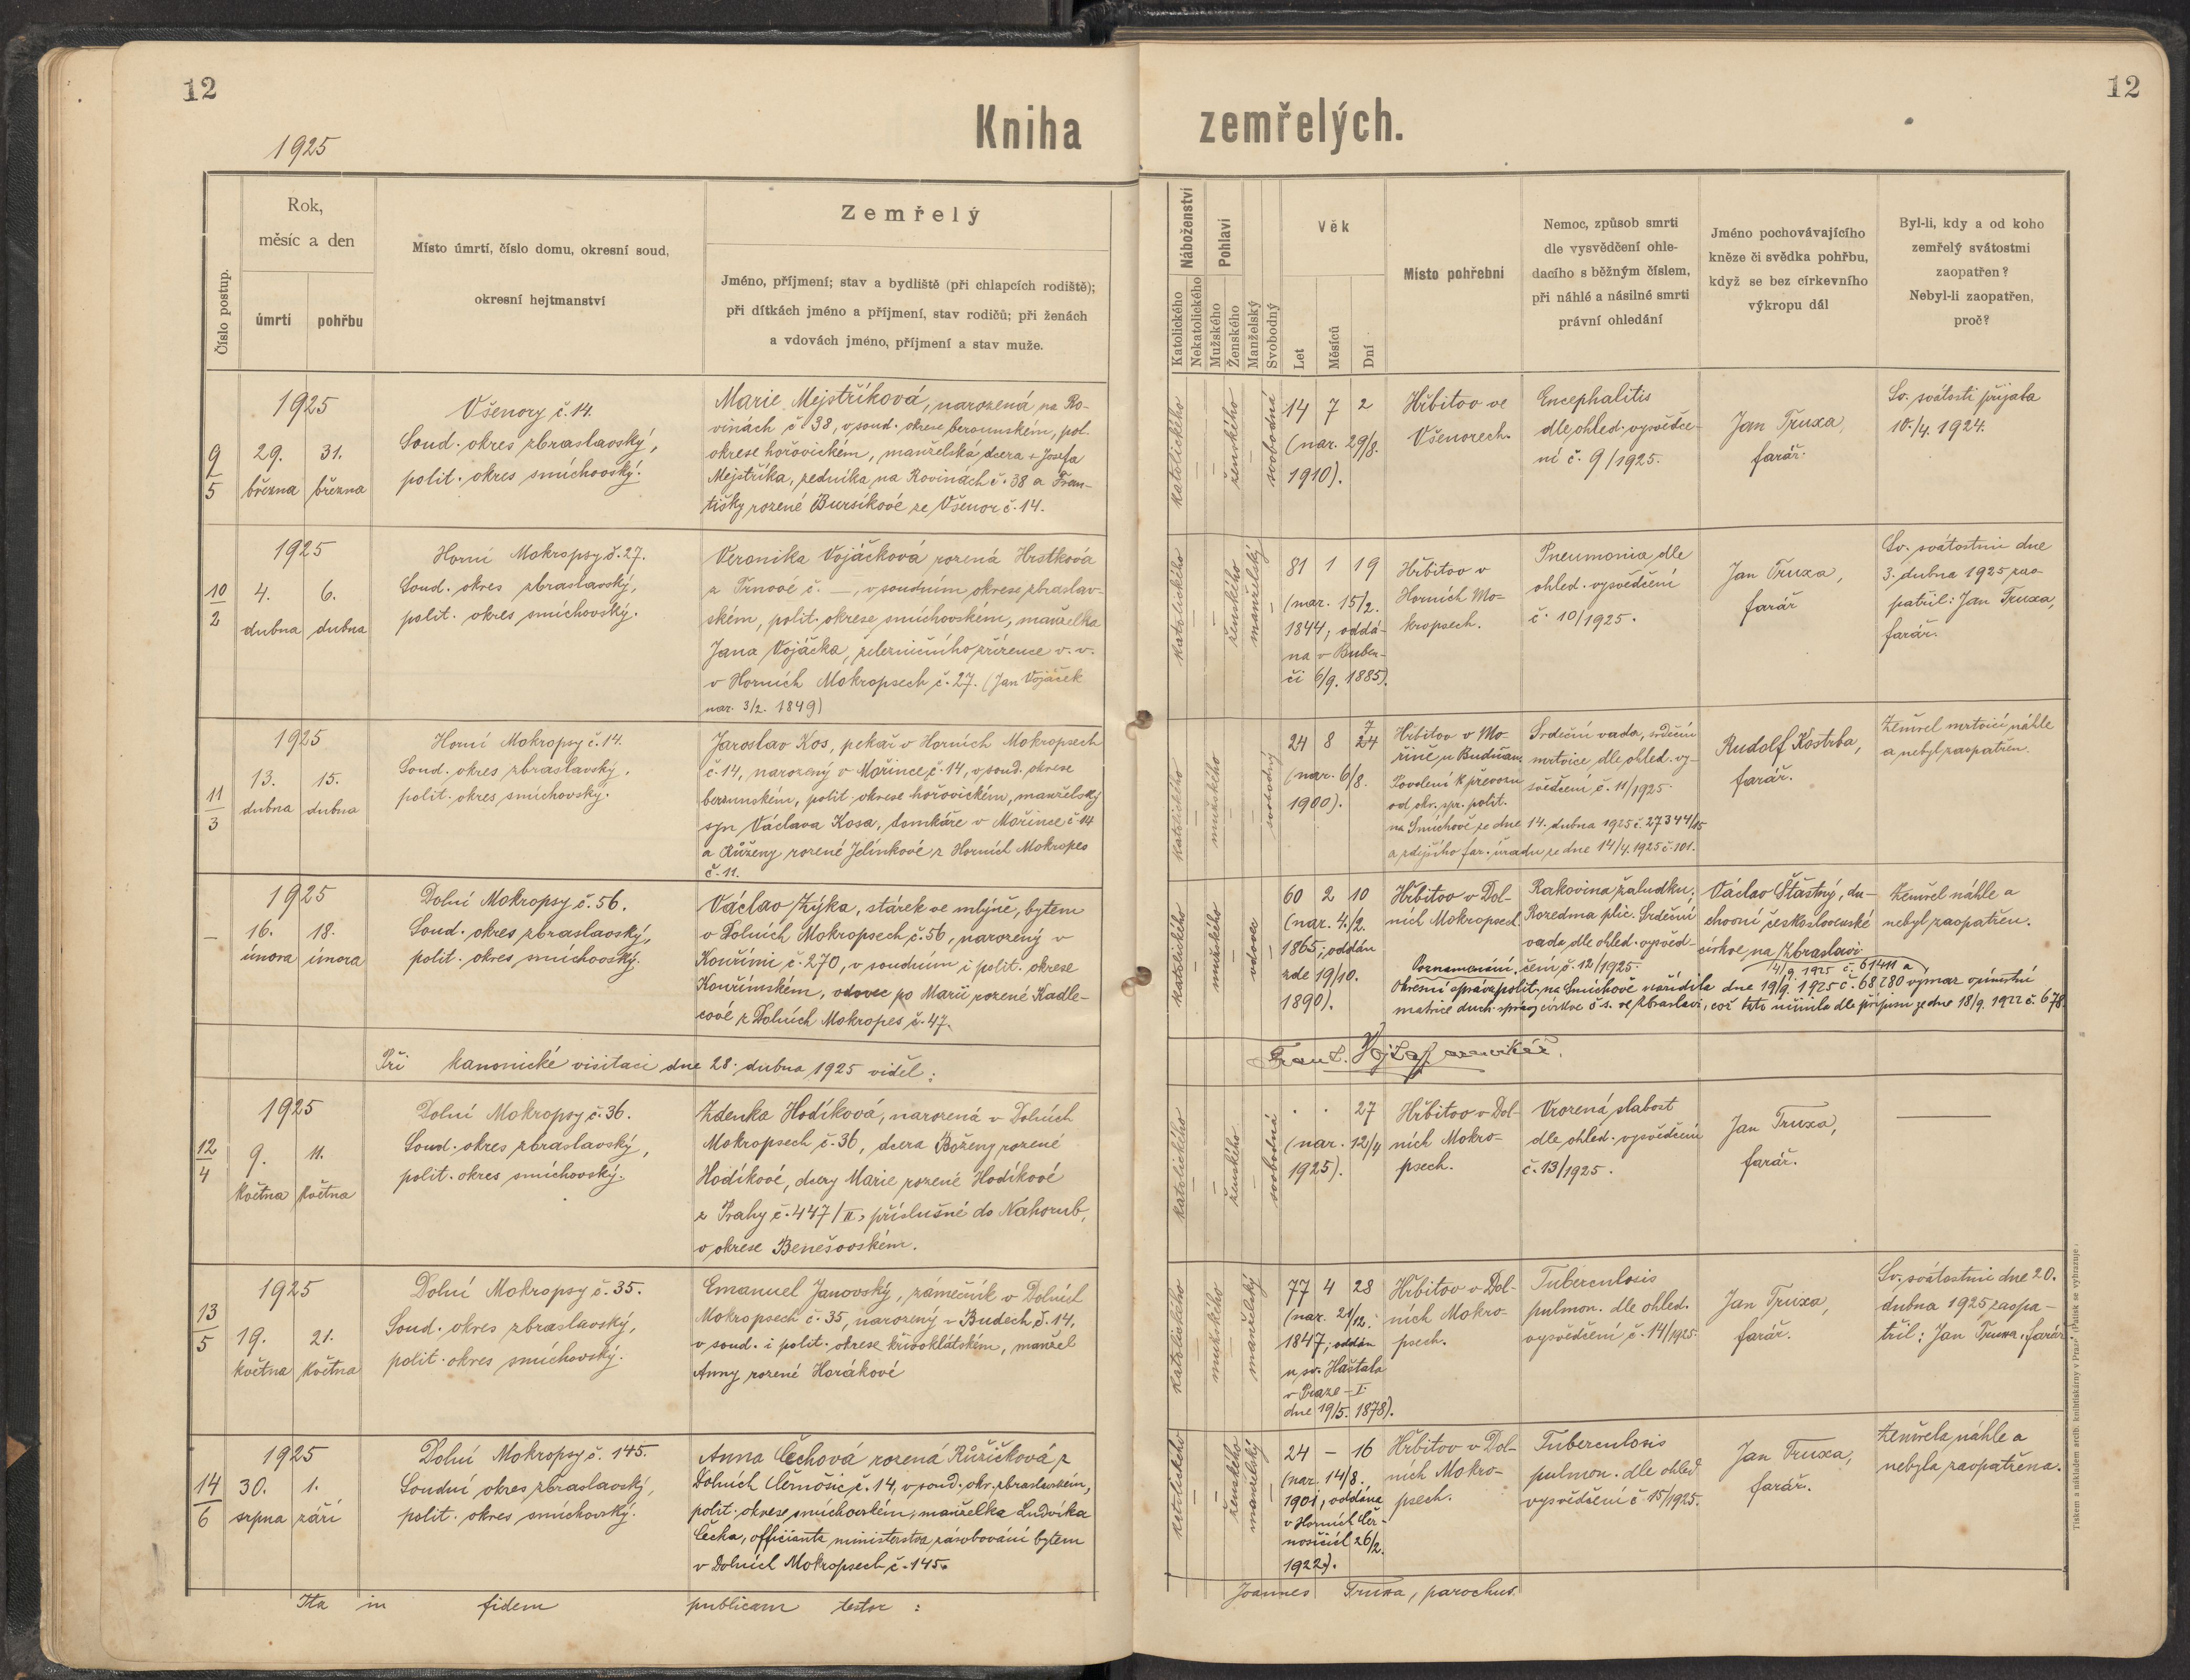 12
12
Kniha zemřelých.
1925
Číslo postup.
Rok,
měsíc a den
úmrtí
pohřbu
Místo úmrtí, číslo domu, okresní soud,
okresní hejtmanství
Zemřelý
Jméno, příjmení; stav a bydliště (při chlapcích rodiště);
při dítkách jméno a příjmení, stav rodičů; při ženách
a vdovách jméno, příjmení a stav muže.
Náboženství
Katolického
Nekatolického
Pohlaví
Mužského
Ženského
Manželský
Svobodný
Věk
Let
Měsíců
Dní
Místo pohřební
Nemoc, způsob smrti
dle vysvědčení ohle-
dacího s běžným číslem,
při náhlé a násilné smrti
právní ohledání
Jméno pochovávajícího
kněze či svědka pohřbu,
když se bez církevního
výkropu dál
Byl-li, kdy a od koho
zemřelý svátostmi
zaopatřen?
Nebyl-li zaopatřen,
proč?
9
5
1925
29.
března
31.
března
Všenory č. 14.
Soud. okres zbraslavský,
polit. okres smíchovský.
Marie Mejstříková, narozená na Ro-
vinách č 38, v soud. okrese berounském, pol.
okrese hořovickém, manželská dcera + Josefa
Mejstříka, zedníka na Rovinách č. 38 a Fran-
tišky rozené Bursíkové ze Všenor č. 14.
katolického
ženského
svobodná
14 7 2
(nar. 29/8.
1910).
Hřbitov ve
Všenorech.
Encephalitis
dle ohled. vysvědče-
ní č. 9/1925.
Jan Truxa,
farář.
Sv. svátosti přijala
10./4. 1924.
10
2
1925
4.
dubna
6.
dubna
Horní Mokropsy č. 27.
Soud. okres zbraslavský,
polit. okres smíchovský.
Veronika Vojáčková rozená Hrstková
z Trnové č. —, v soudním okrese zbraslav-
ském, polit. okrese smíchovském, manželka
Jana Vojáčka, železničního zřízence v. v.
v Horních Mokropsech č. 27. (Jan Vojáček
nar. 3/2. 1849)
katolického
ženského
manželský
81 1 19
(nar. 15/2.
1844; oddá-
na v Buben-
či 6/9. 1885).
Hřbitov v
Horních Mo-
kropsech.
Pneumonia dle
ohled. vysvědčení
č. 10/1925.
Jan Truxa,
farář
Sv. svátostmi dne
3. dubna 1925 zao-
patřil: Jan Truxa,
farář.
11
3
1925
13.
dubna
15.
dubna
Horní Mokropsy č. 14.
Soud. okres zbraslavský,
polit. okres smíchovský.
Jaroslav Kos, pekař v Horních Mokropsech
č. 14, narozený v Mořince č. 14, v soud. okrese
berounském, polit. okrese hořovickém, manželský
syn Václava Kosa, domkáře v Mořince č 14
a Růženy rozené Jelínkové z Horních Mokropes
č. 11.
katolického
mužského
svobodný
7
24 8 24
(nar. 6/8.
1900).
Hřbitov v Mo-
řině u Budňan.
Povolení k převozu
od okr. spr. polit.
na Smíchově ze dne 14. dubna 1925 č. 27344/15
a zdejšího far. úřadu ze dne 14/4. 1925 č. 101.
Srdeční vada, srdeční
mrtvice dle ohled. vy-
svědčení č. 11/1925.
Rudolf Kostrba,
farář.
Zemřel mrtvicí náhle
a nebyl zaopatřen.
—
1925
16.
února
18.
února
Dolní Mokropsy č. 56.
Soud. okres zbraslavský,
polit. okres smíchovský.
Václav Zýka, stárek ve mlýně, bytem
v Dolních Mokropsech č. 56, narozený v
Kouřimi č. 270, v soudním i polit. okrese
Kouřimském, vdovec po Marii rozené Kadle-
cové z Dolních Mokropes č. 47.
katolického
mužského
vdovec
60 2 10
(nar. 4./2.
1865; oddán
zde 19/10.
1890).
Hřbitov v Dol-
ních Mokropsech.
Rakovina žaludku,
Rozedma plic. Srdeční
vada dle ohled. vysvěd-
čení č. 12/1925.
Václav Šťastný, du-
chovní československé
církve na Zbraslavi.
Zemřel náhle a
nebyl zaopatřen.
Poznamenání.
4/9. 1925 č. 61411 a
Okresní správa polit. na Smíchově nařídila dne 19/9. 1925 č. 68280 výmaz v úmrtní
matrice duch. správy církve č. s. ve Zbraslavi, což tato učinila dle přípisu ze dne 18/9. 1922 č. 678.
Při kanonické visitaci dne 28. dubna 1925 viděl:
Frant.
12
4
1925
9.
května
11.
května
Dolní Mokropsy č. 36.
Soud. okres zbraslavský,
polit. okres smíchovský.
Zdenka Hodíková, narozená v Dolních
Mokropsech č. 36, dcera Boženy rozené
Hodíkové, dcery Marie rozené Hodíkové
z Prahy č. 447/II, příslušné do Nahorub,
v okrese Benešovském.
katolického
ženského
svobodná
. . 27
(nar. 12/4
1925).
Hřbitov v Dol-
ních Mokro-
psech.
Vrozená slabost
dle ohled. vysvědčení
č. 13/1925.
Jan Truxa,
farář.
—
13
5
1925
19.
května
21.
května
Dolní Mokropsy č. 35.
Soud. okres zbraslavský,
polit. okres smíchovský.
Emanuel Janovský, zámečník v Dolních
Mokropsech č. 35, narozený v Budech č. 14,
v soud. i polit. okrese křivoklátském, manžel
Anny rozené Horákové
katolického
mužského
manželský
77 4 28
(nar. 21/12.
1847; oddán
u sv. Haštala
v Praze - I.
dne 19/5. 1878).
Hřbitov v Dol-
ních Mokro-
psech.
Tuberculosis
pulmon. dle ohled.
vysvědčení č. 14/1925.
Jan Truxa,
farář.
Sv. svátostmi dne 20.
dubna 1925 zaopa-
třil: Jan Truxa, farář
14
6
1925
30.
srpna
1.
září
Dolní Mokropsy č. 145.
Soudní okres zbraslavský,
polit. okres smíchovský.
Anna Čechová rozená Růžičková z
Dolních Černošic č. 14, v soud. okr. zbraslavském,
polit. okrese smíchovském, manželka Ludvíka
Čecha, officianta ministerstva zásobování bytem
v Dolních Mokropsech č. 145.
katolického
ženského
manželský
24 — 16
(nar. 14/8.
1901, oddána
v Horních Čer-
nošicích 26/2.
1922).
Hřbitov v Dol-
ních Mokro-
psech.
Tuberculosis
pulmon. dle ohled
vysvědčení č. 15/1925.
Jan Truxa,
farář.
Zemřela náhle a
nebyla zaopatřena.
Ita in fidem publicam testor :
Joannes Truxa, parochus.
Tiskem a nákladem arcib. knihtiskárny v Praze. (Patisk se vyhrazuje.)